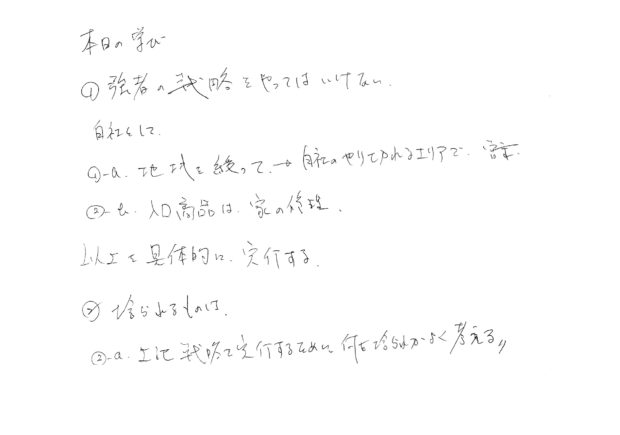 本日の学び
① 強者の戦略をやってはいけない.
自社として.
①-a. 地域を絞って. → 自社のやりきれるエリアで.
②-b. 入口商品は、家の修理.
以上を具体的に、実行する.
② 捨られるものは.
②-a. 上記戦略を実行するために何を捨られるかよく考える〃